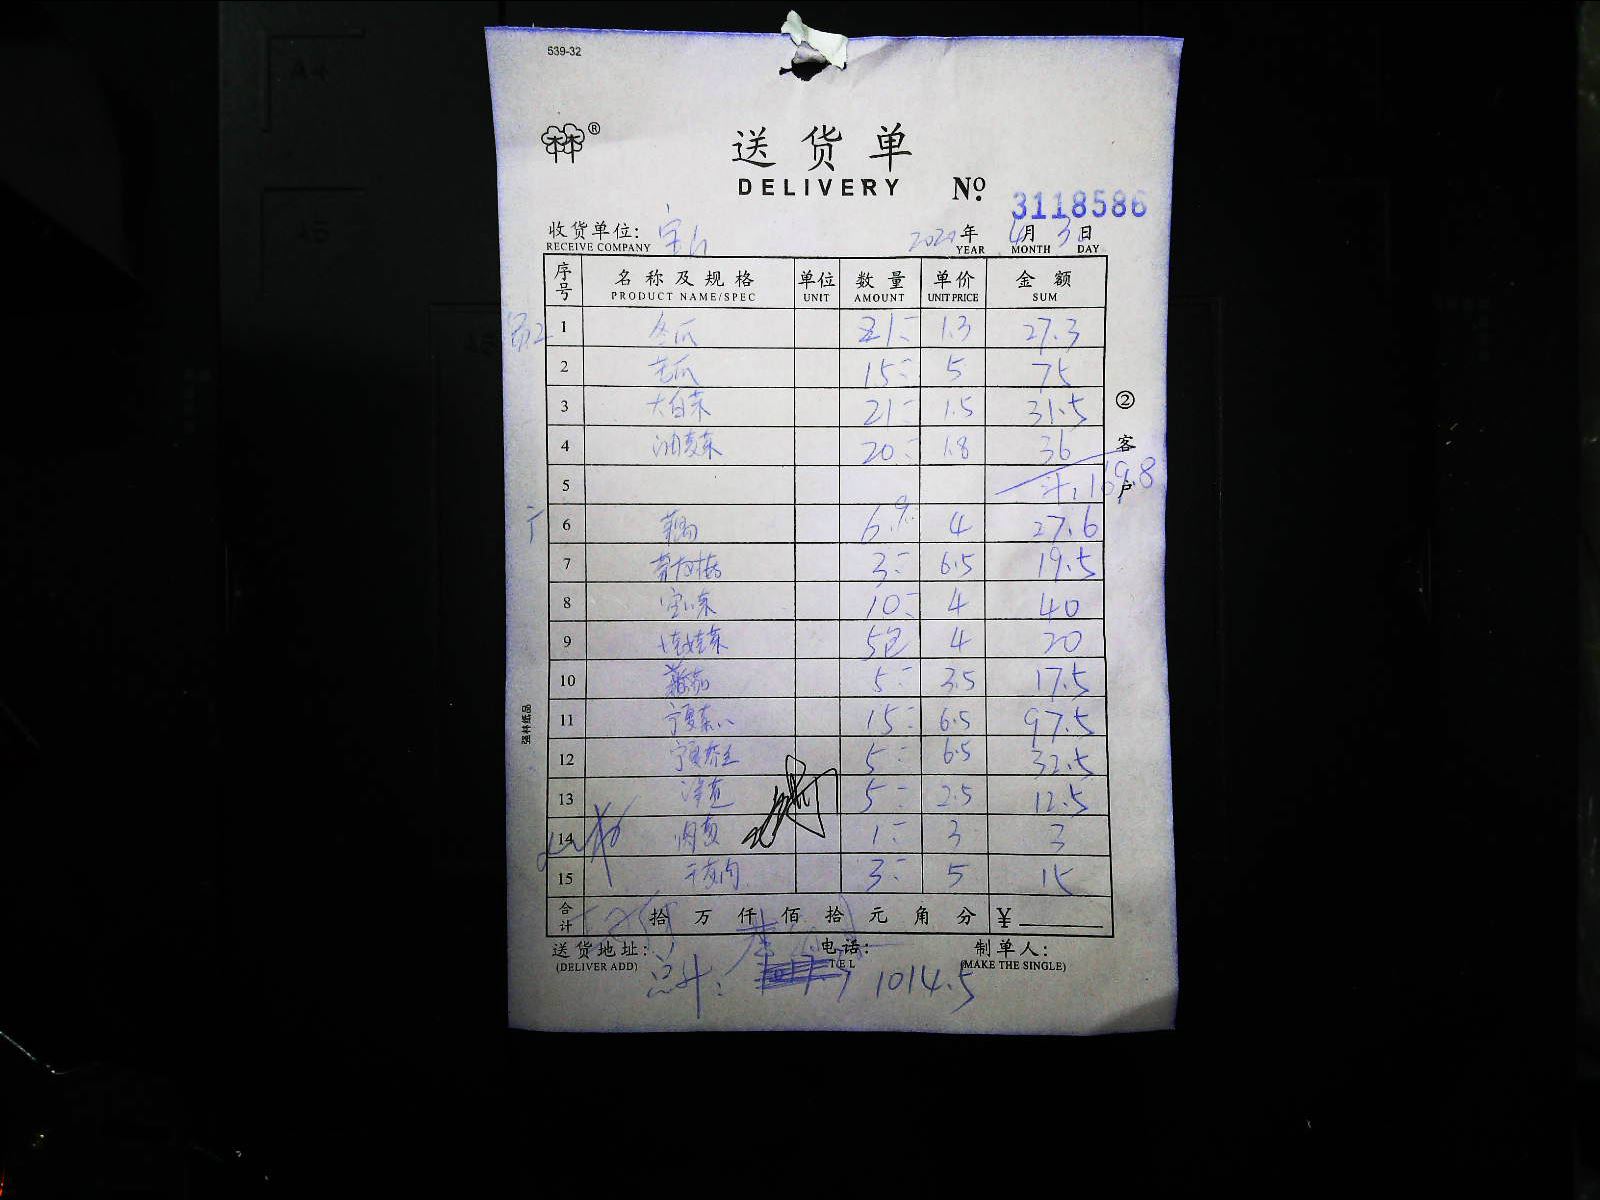 539-32
®
送货单
DELIVERY
No. 3118586
收货单位:
RECEIVE COMPANY
2020年 4月 3日
YEAR MONTH DAY
序号 名称及规格 单位 数量 单价 金额
PRODUCT NAME/SPEC UNIT AMOUNT UNIT PRICE SUM
1 冬瓜 21 1.3 27.3
2 毛瓜 15 5 75
3 大白菜 21 1.5 31.5
4 油麦菜 20 1.8 36
5 计:169.8
6 6.9 4 27.6
7 3 6.5 19.5
8 10 4 40
9 娃娃菜 5包 4 20
10 蕃茄 5 3.5 17.5
11 宁夏菜心 15 6.5 97.5
12 宁夏 5 6.5 32.5
13 5 2.5 12.5
14 1 3 3
15 3 5 15
合计 拾万仟佰拾元角分 ¥
送货地址: 电话: 制单人:
(DELIVER ADD) TEL (MAKE THE SINGLE)
总计: 1014.5
② 客户
强林纸品